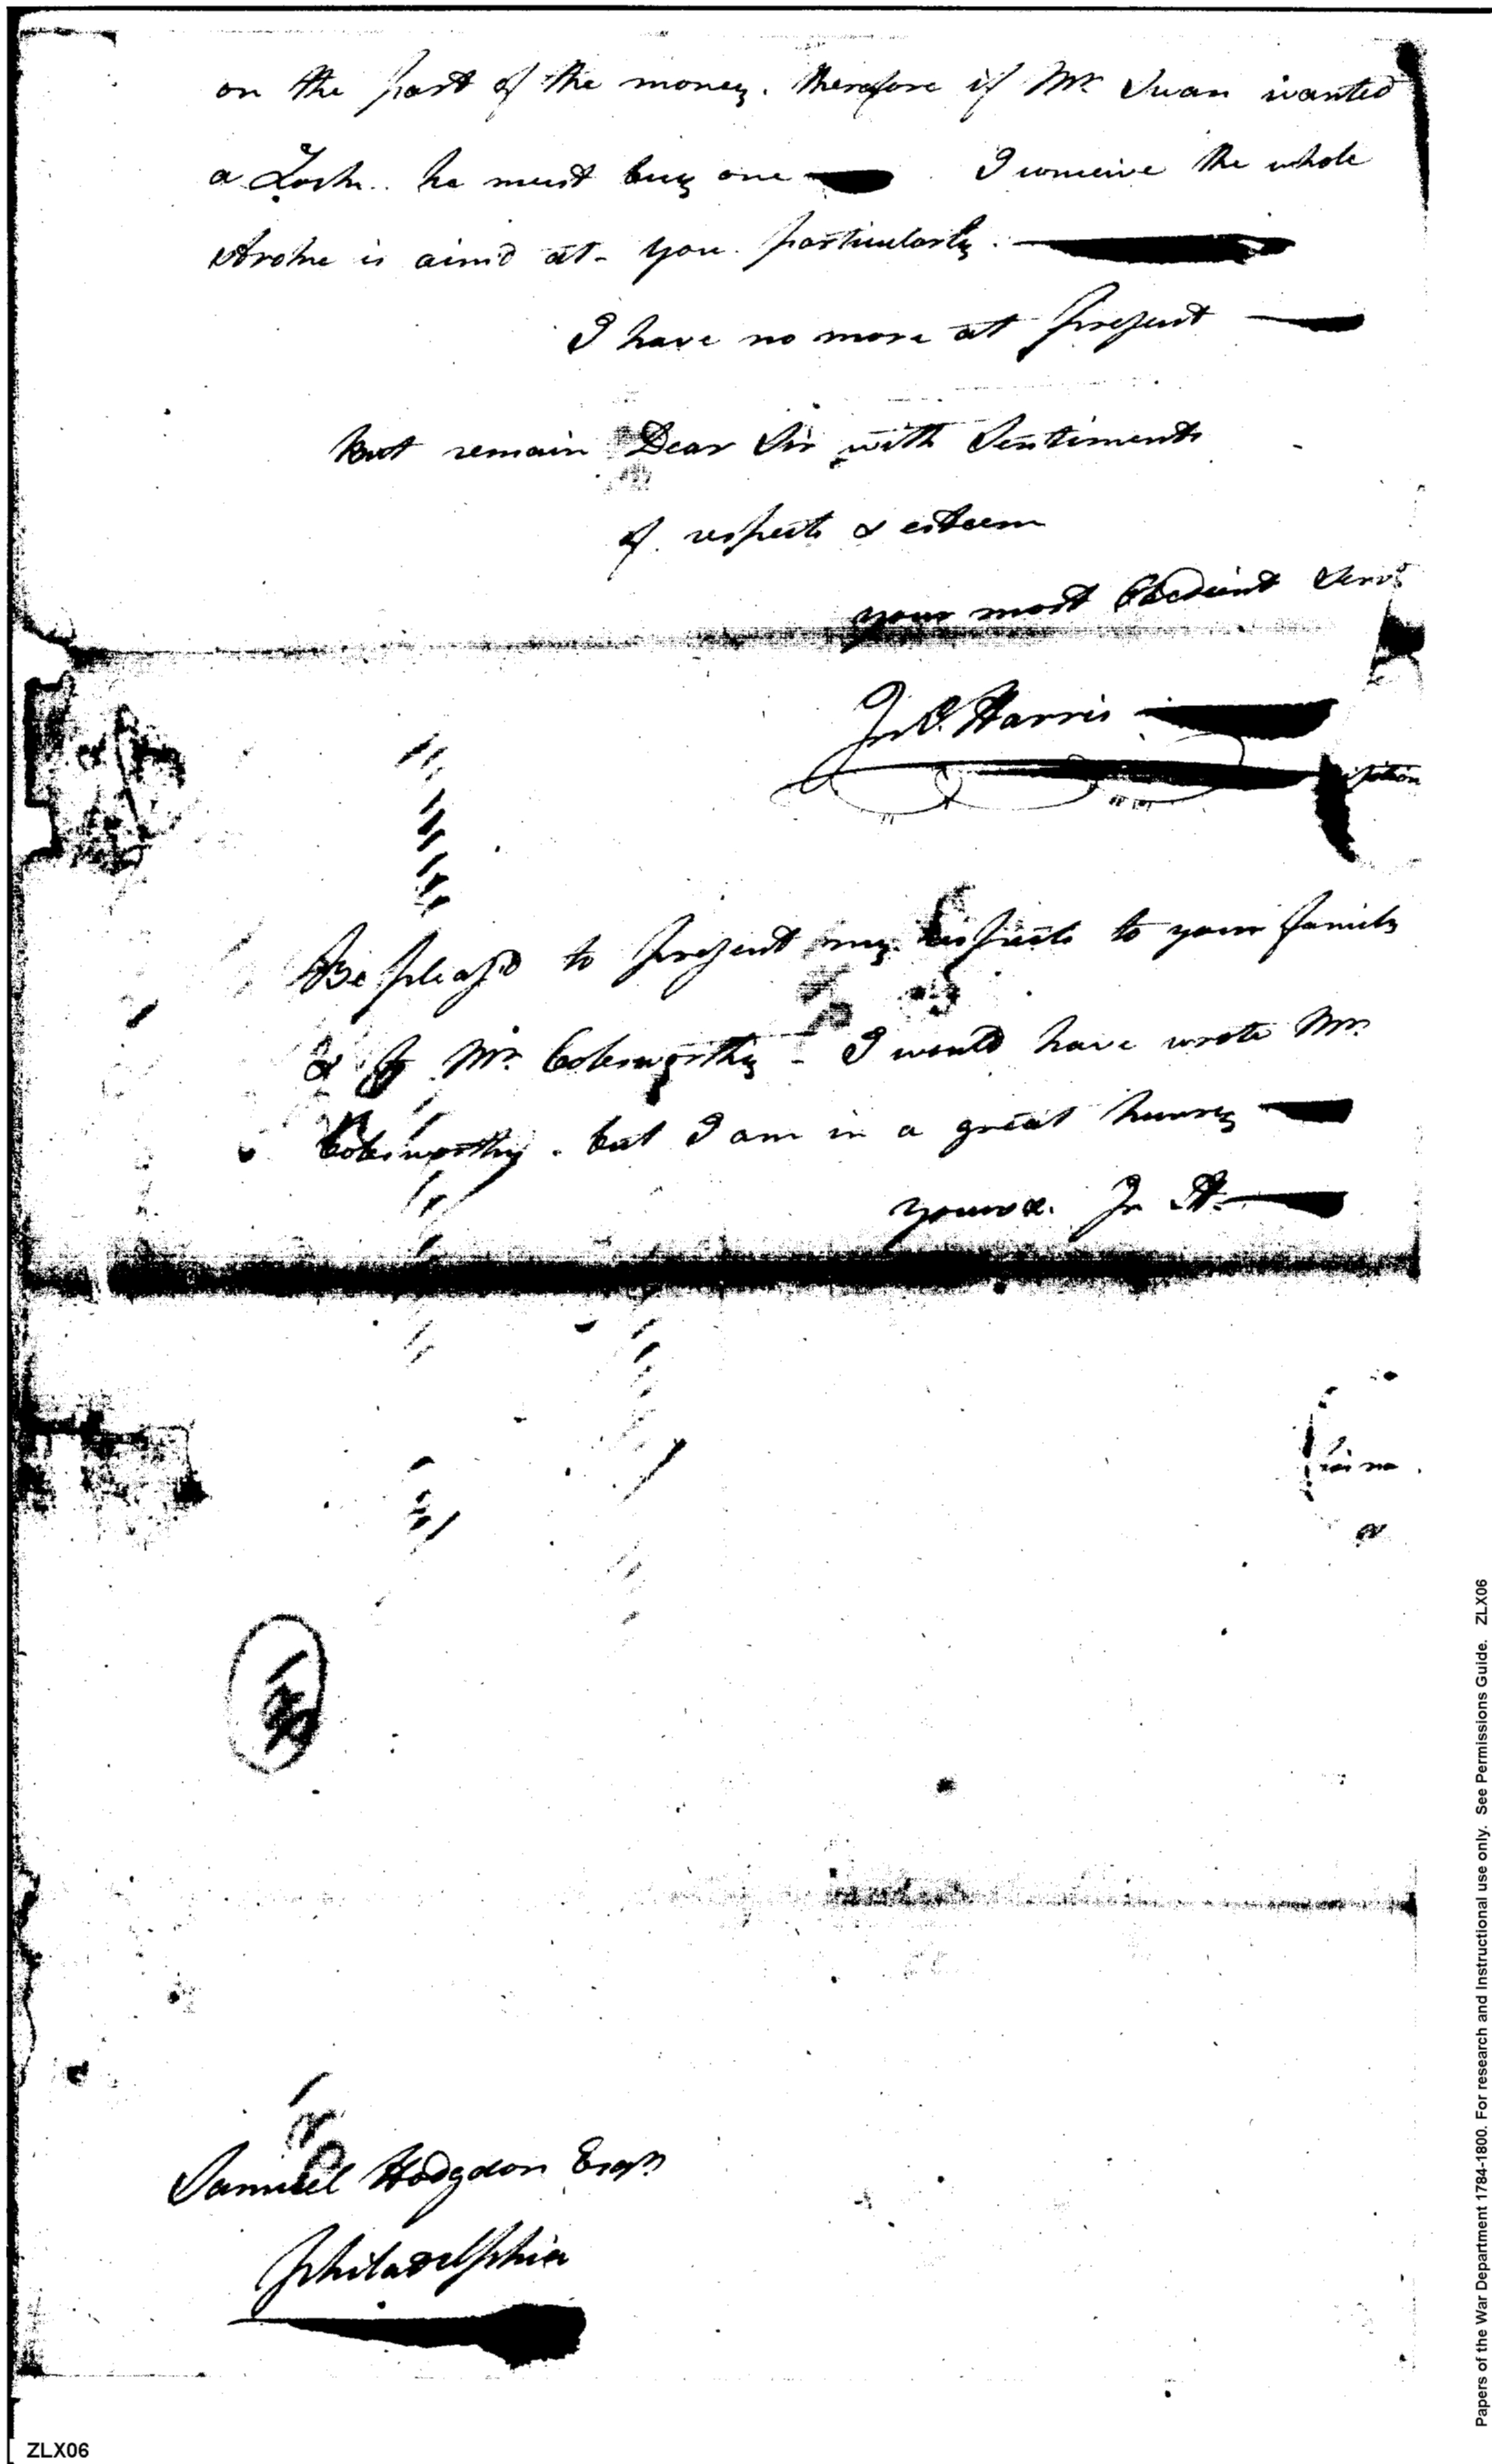 on the part of the money. therefore if Mr. Swan wanted
a Lock.. he must buy one — I conceive the whole
Stroke is aim'd at - you. particularly. —
I have no more at present —
but remain Dear Sir with Sentiments
of respects & esteem
your most Obedient Servt
Jn. G. Harris —
Be pleas'd to present my respects to your family
& to Mr. Colesworthy - I would have wrote Mr.
Colesworthy. but I am in a great hurrey —
yours &. Jn H. —
Samuel Hodgdon Esqr.
Philadelphia
Papers of the War Department 1784-1800. For research and Instructional use only. See Permissions Guide. ZLX06
ZLX06